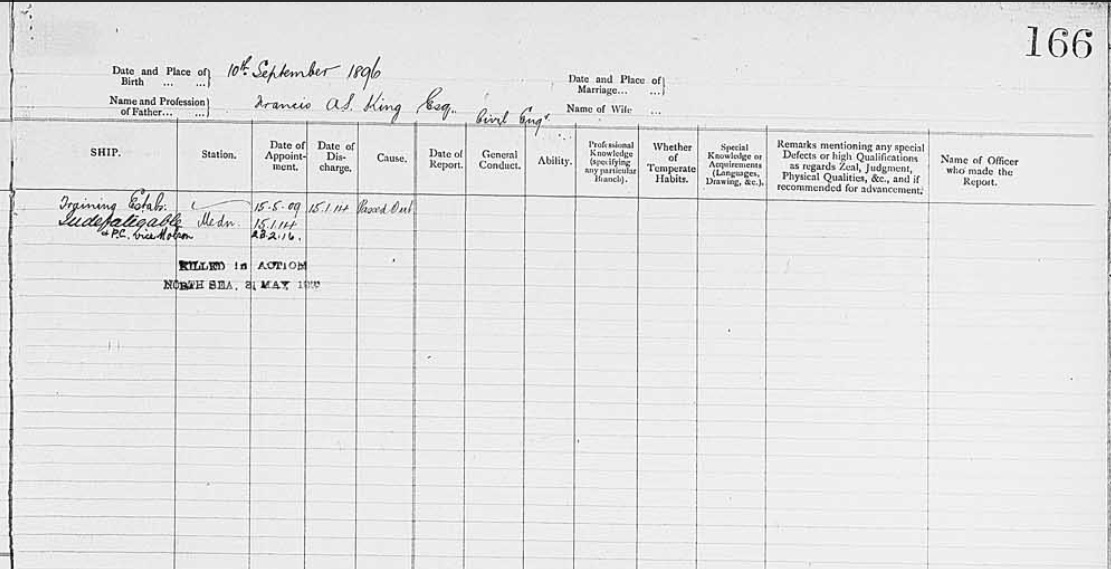 166
Date and Place of Birth ... ...} 10th September 1896
Date and Place of Marriage... ...}
Name and Profession of Father... ...} Francis A.S. King Esq. Civil Engr.
Name of Wife ...
SHIP. Station. Date of Appoint-ment. Date of Dis-charge. Cause. Date of Report. General Conduct. Ability. Professional Knowledge (specifying any particular Branch). Whether of Temperate Habits. Special Knowledge or Acquirements (Languages, Drawing, &c.). Remarks mentioning any special Defects or high Qualifications as regards Zeal, Judgment, Physical Qualities, &c., and if recommended for advancement. Name of Officer who made the Report.
Training Estab. 15.5.09 15.1.14 Passed Out
Indefatigable Medn. 15.1.14
P.C. vice 23.2.16.
KILLED in ACTION
NORTH SEA, MAY